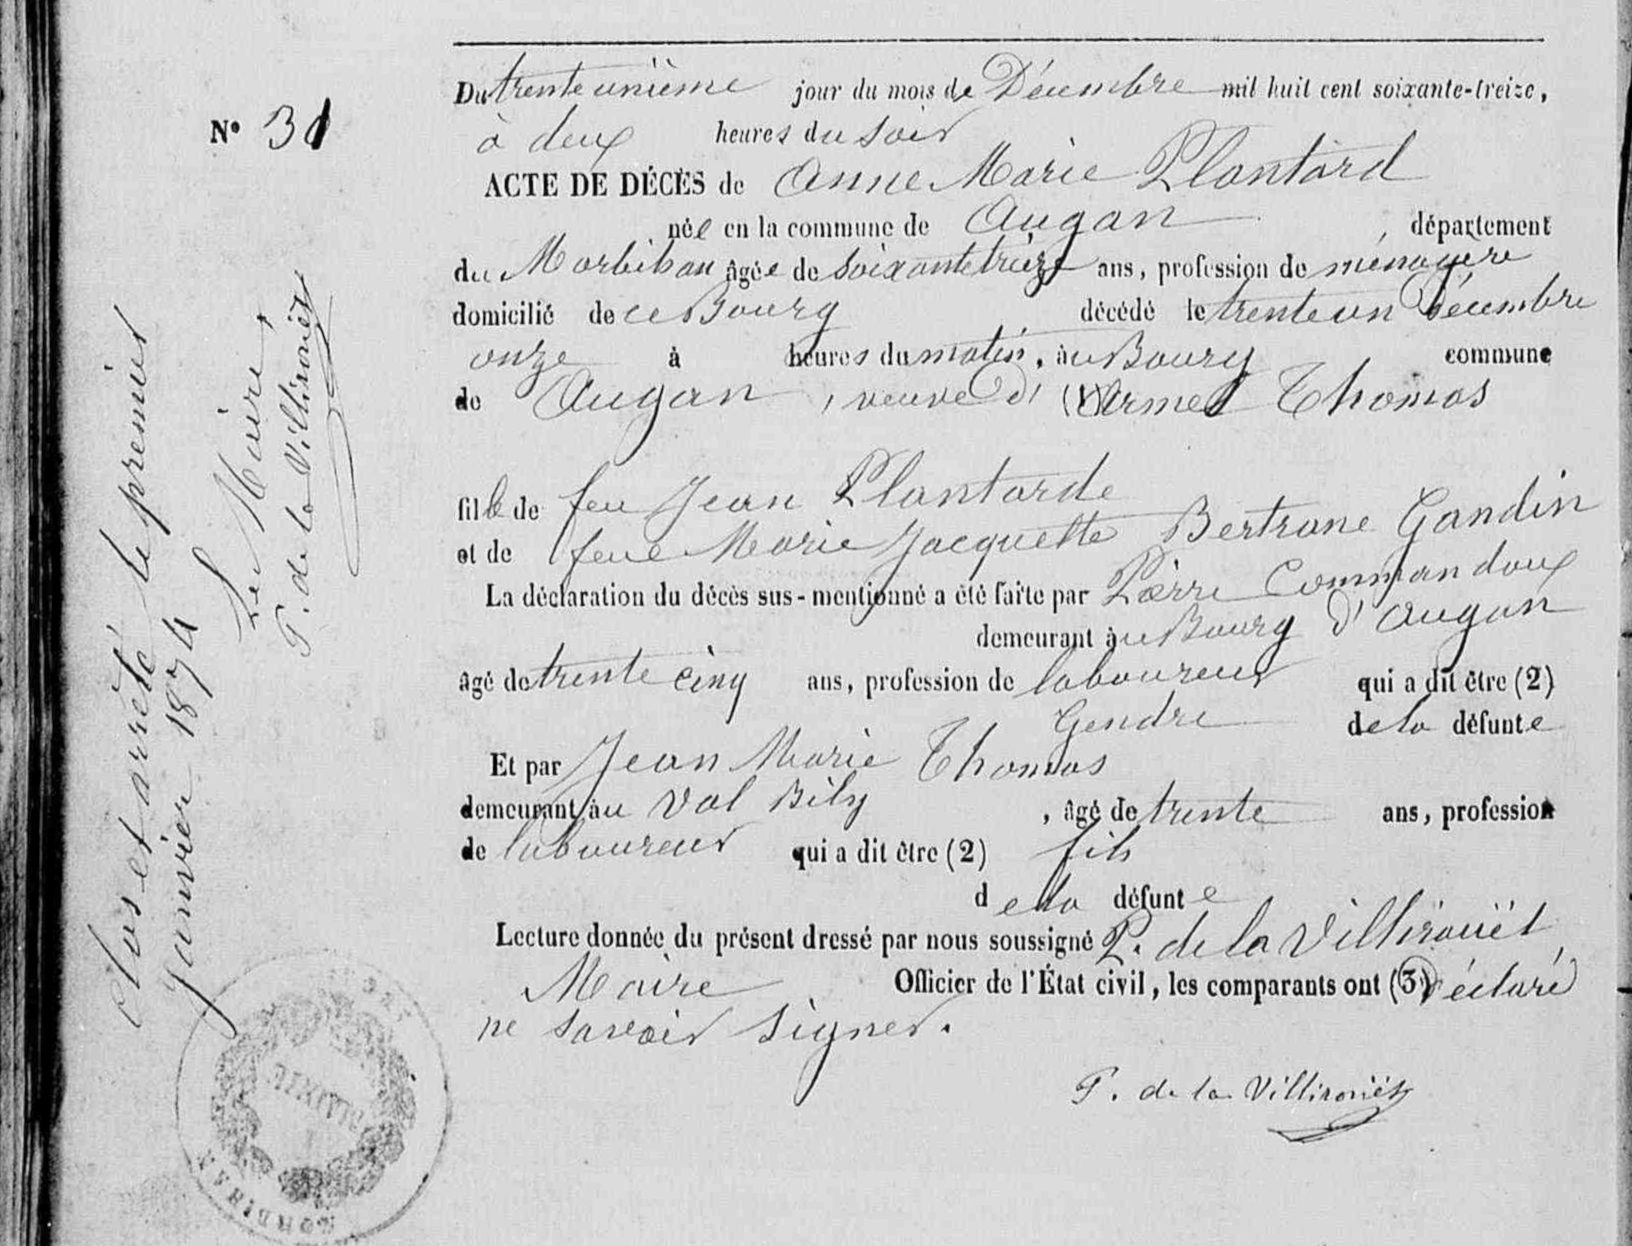 Du trente unième jour du mois de Décembre mil huit cent soixante-treize,
N° 31
à deux heures du soir
ACTE DE DÉCÈS de Anne Marie Plantard
née en la commune de Augan département
du Morbihan âgée de soixante treize ans, profession de ménagère
domicilié de ce Bourg décédé le trente un Décembre
onze à heures du matin, au Bourg commune
de Augan, veuve d' (1) Armel Thomas
fille de feu Jean Plantarde
et de feue Marie Jacquette Bertrane Gandin
La déclaration du décès sus-mentionné a été faite par Pierre Commandoux
demeurant au Bourg d'Augan
âgé de trente cinq ans, profession de laboureur qui a dit être (2)
Gendre de la défunte
Et par Jean Marie Thomas
demeurant au Val Bily, âgé de trente ans, profession
de laboureur qui a dit être (2) fils
de la défunte
Lecture donnée du présent dressé par nous soussigné P. de la Villirouët
Maire Officier de l'État civil, les comparants ont (3) déclaré
ne savoir signer.
P. de la Villirouët
Clos et arrêté le premier
Janvier 1874
Le Maire,
P. de la Villirouët
MAIRIE
MORBIHAN